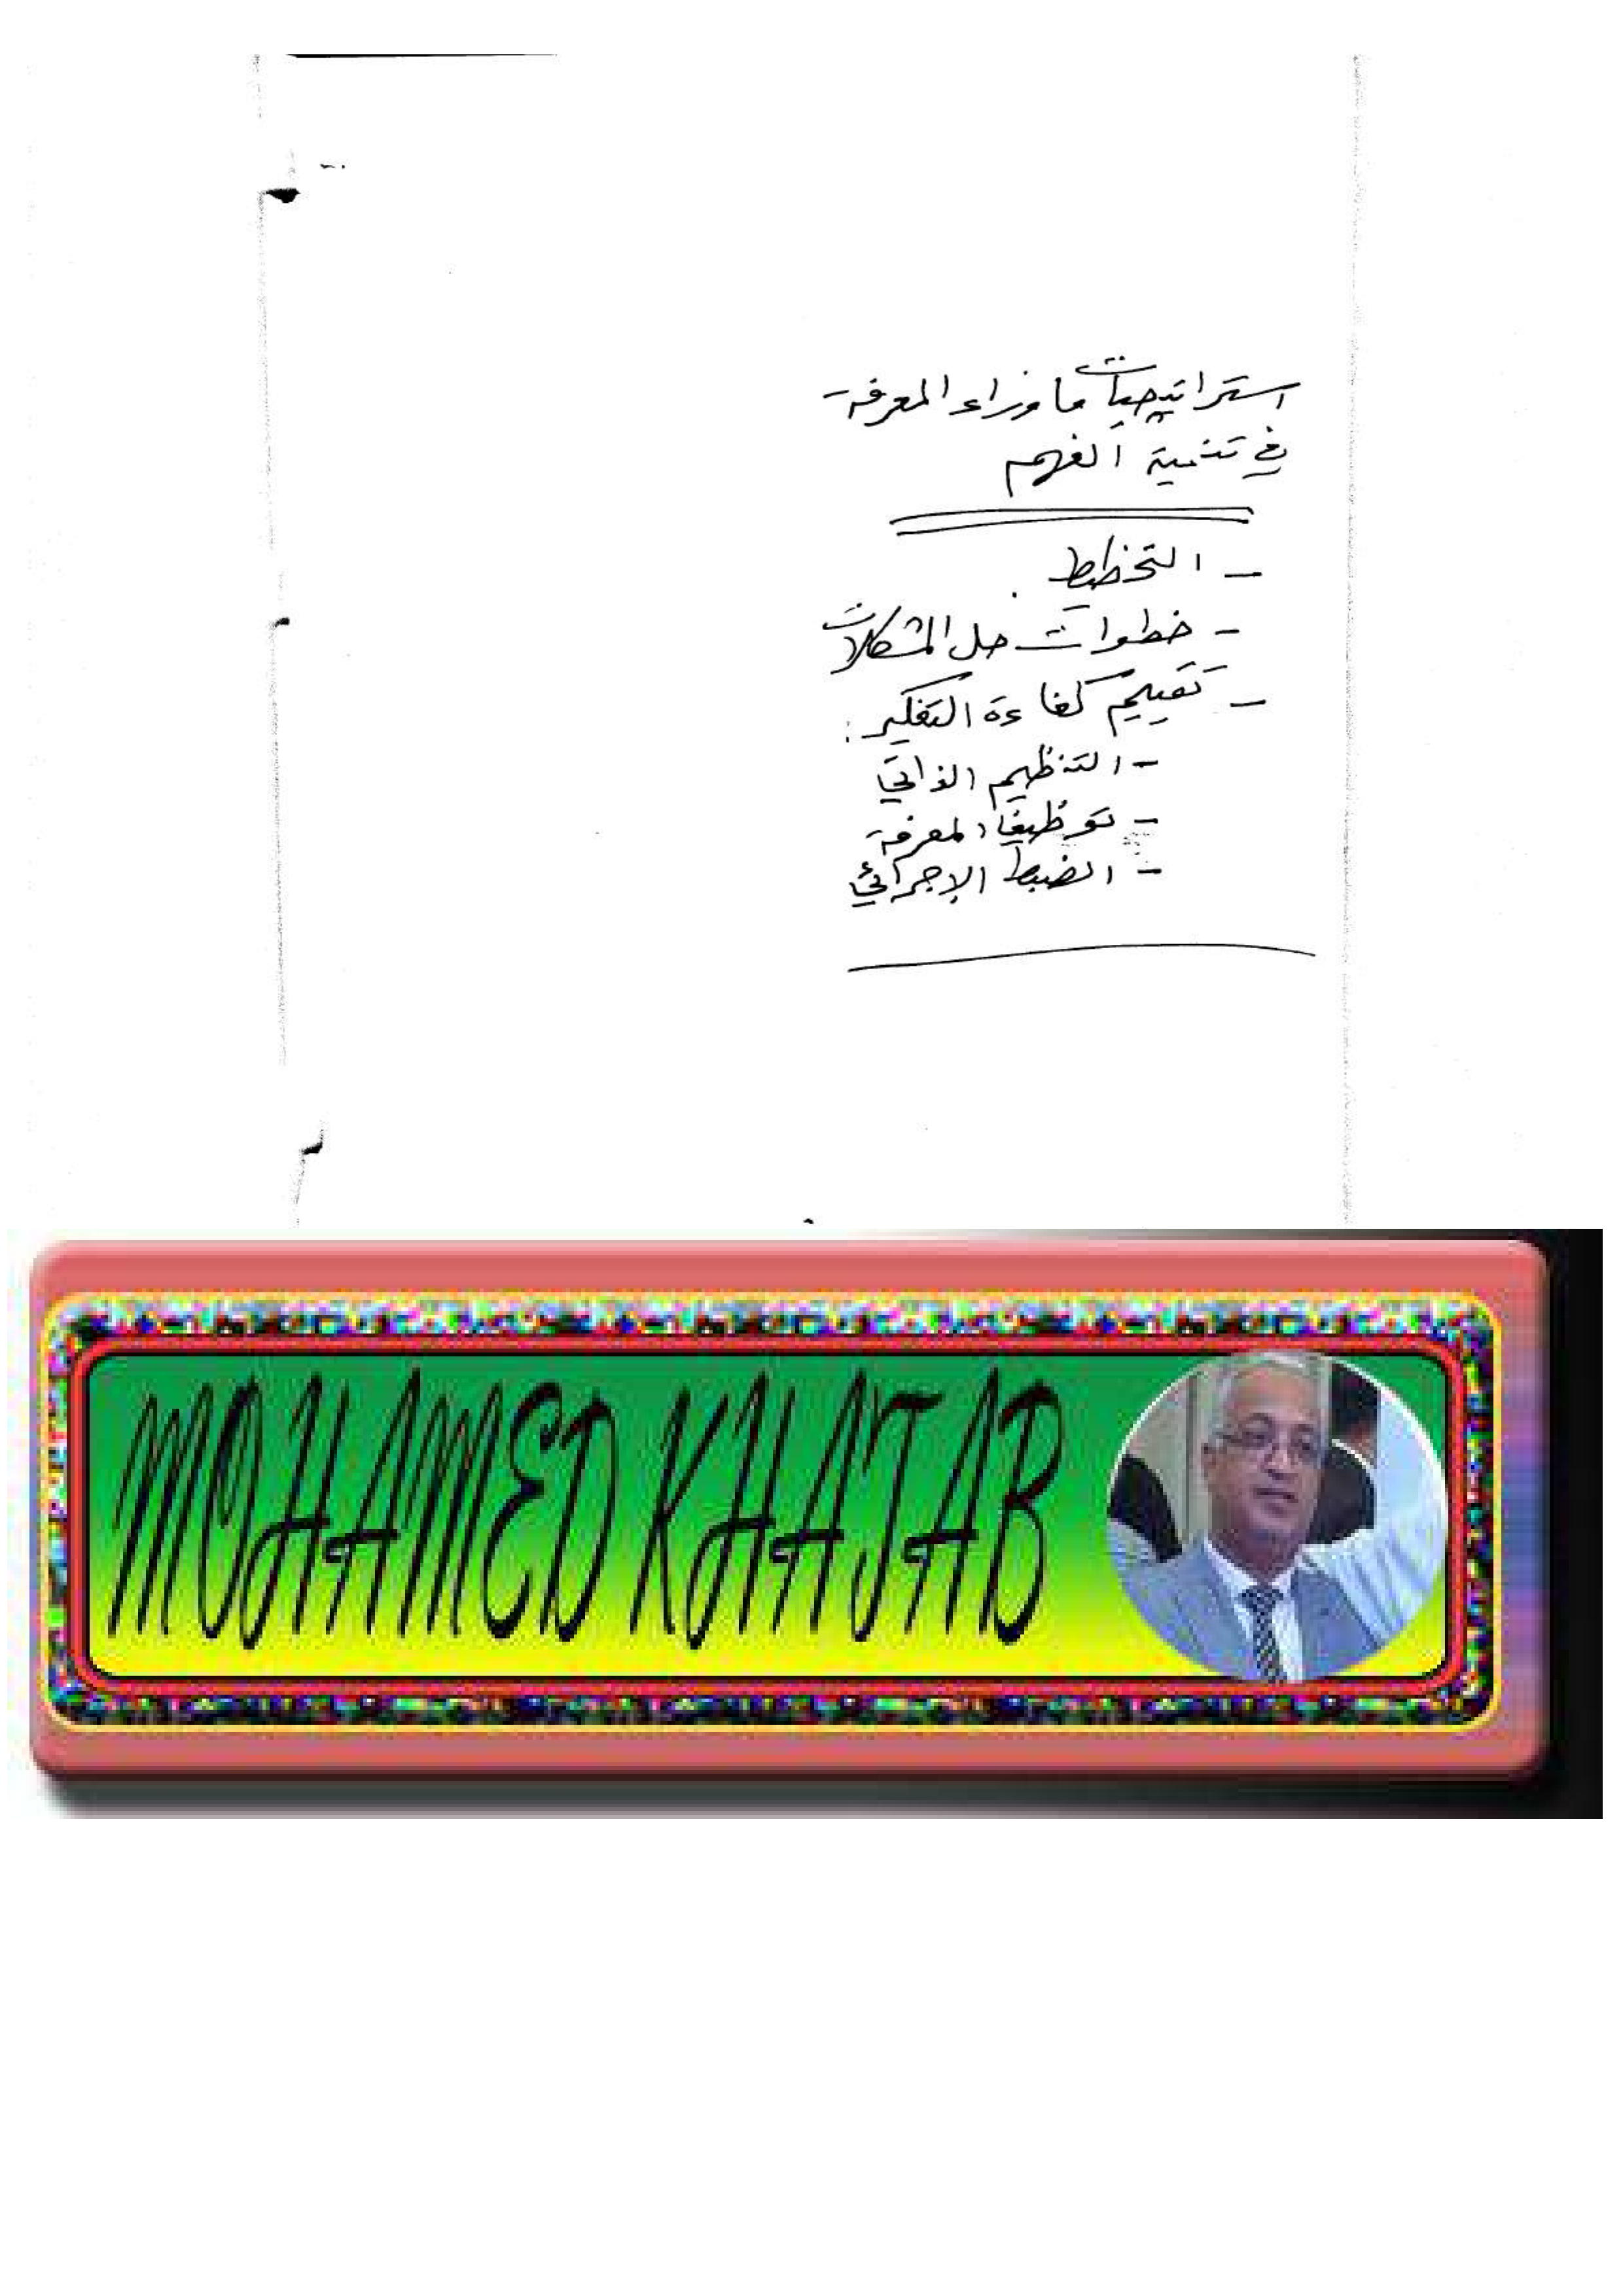 استراتيجيات ما وراء المعرفة
في تنمية الفهم
- التخطيط.
- خطوات حل المشكلات
- تقييم كفاءة التفكير:
- التنظيم الذاتي
- توظيف المعرفة
- الضبط الإجرائي
MOHAMED KHATAB